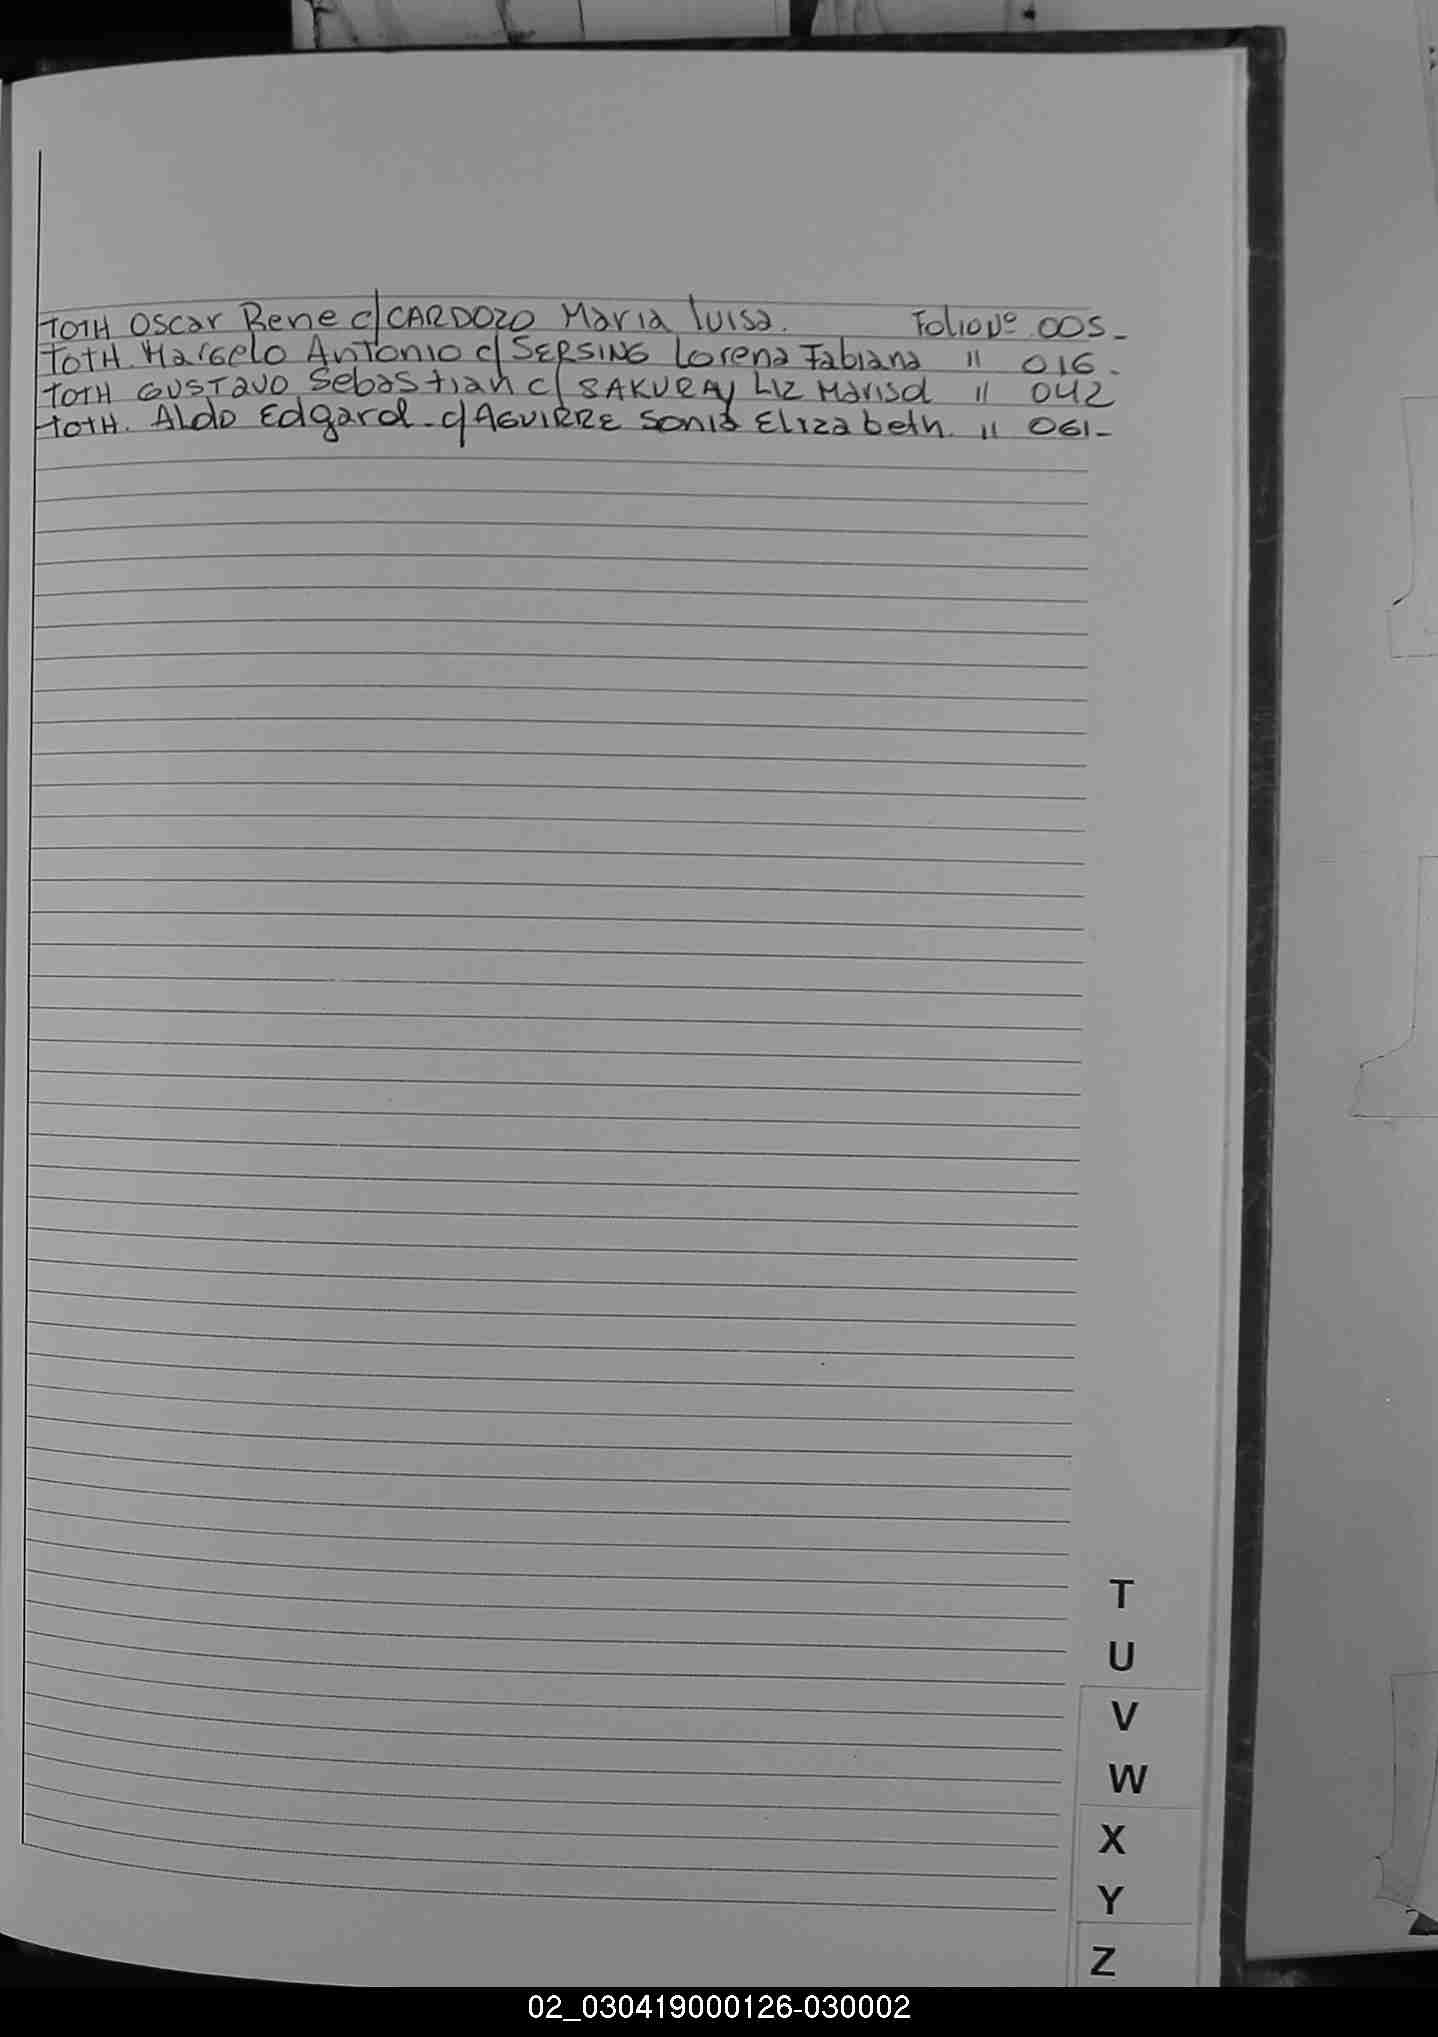 TOTH Oscar Rene c/ CARDOZO Maria Luisa. Folio Nº 005-
TOTH. Marcelo Antonio c/ SERSING Lorena Fabiana " 016-
TOTH GUSTAVO Sebastian c/ SAKURAY Liz Marisol " 042
TOTH. Aldo Edgard - c/ AGUIRRE Sonia Elizabeth. " 061-
T
U
V
W
X
Y
Z
02_030419000126-030002